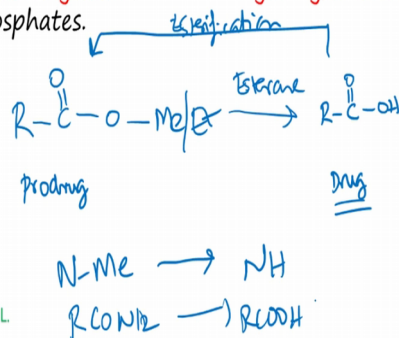 osphates.
Esterification
O O
R-C-O-Me/Et Esterase → R-C-OH
Prodrug Drug
N-Me → NH
RCONH2 → RCOOH
L.